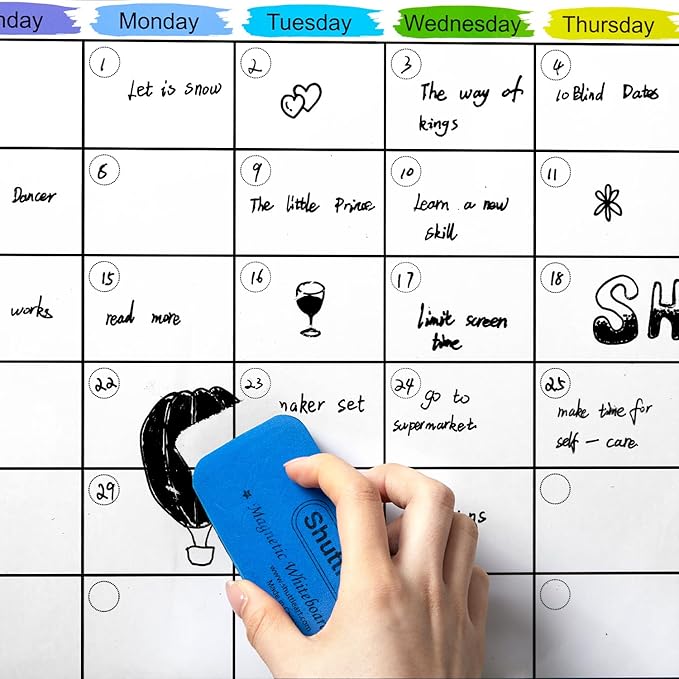 Monday Tuesday Wednesday Thursday
1 2 3 4
Let is snow
The way of
kings
10 Blind Dates
6 9 10 11
Dancer
The little Prince
Learn a new
skill
15 16 17 18
works
read more
limit screen
time
SH
22 23 24 25
maker set
go to
supermarket
make time for
self - care
29
Magnetic Whiteboard